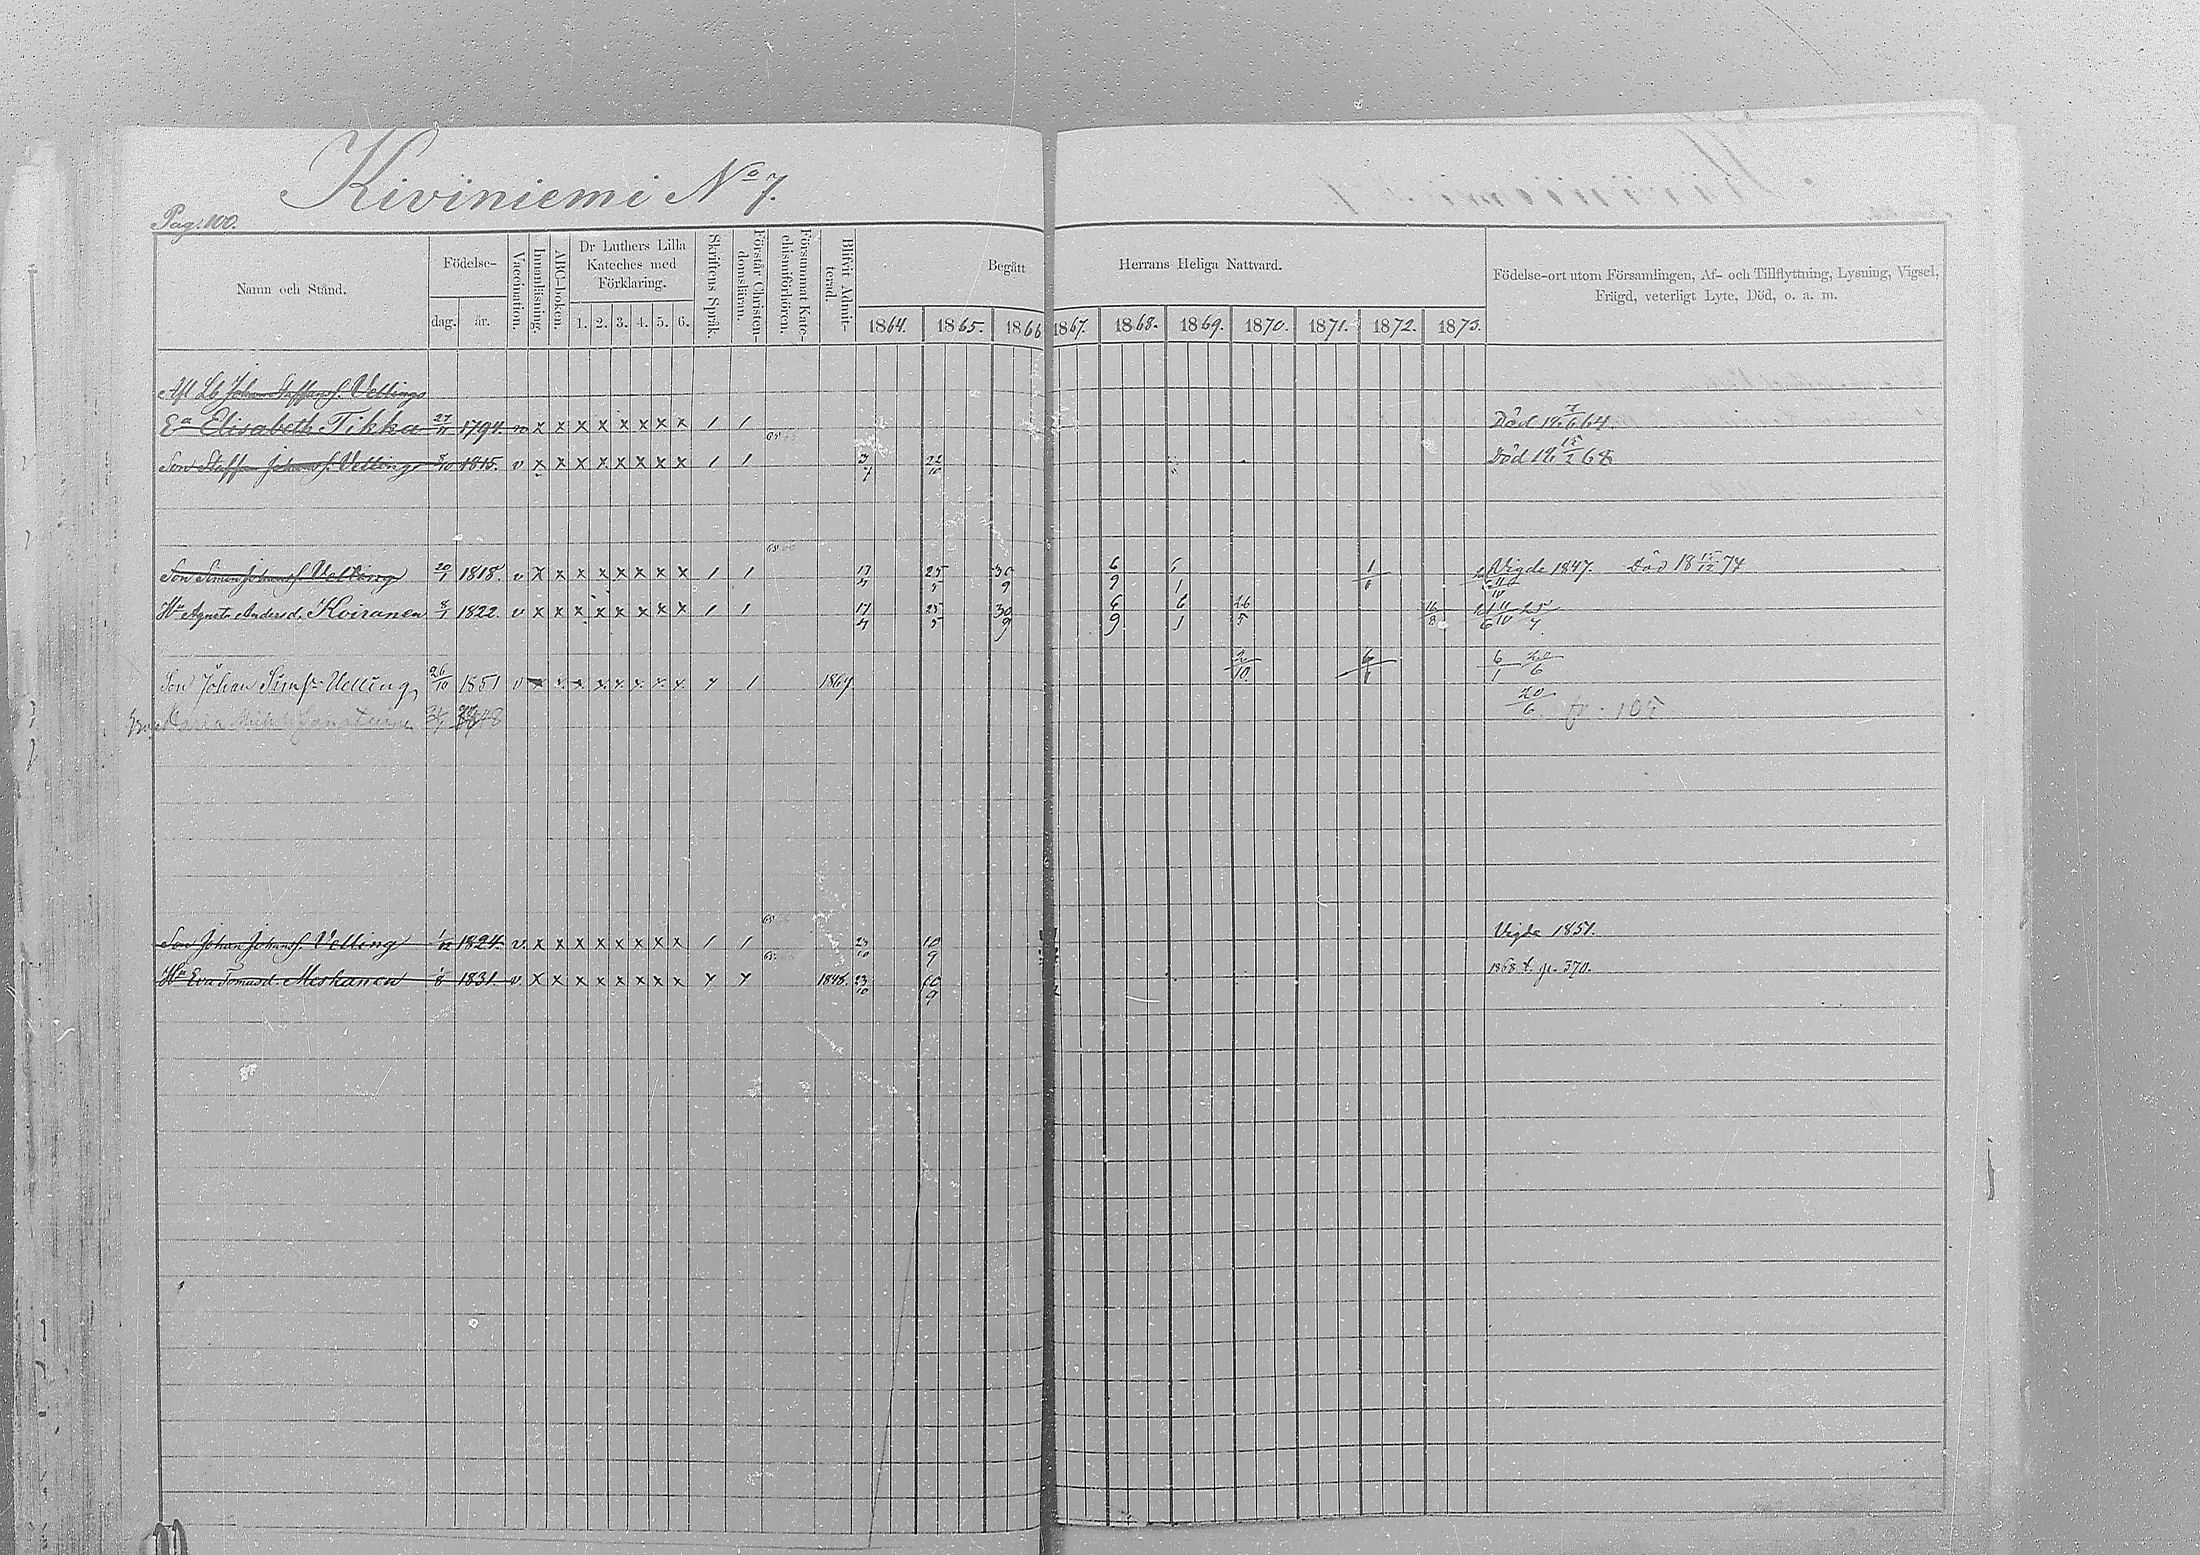 Kiviniemi No 7.
Pag. 100.
Namn och Stånd.
Födelse-
dag. år.
Vaccination.
Innanläsning.
ABC-boken.
Dr Luthers Lilla Kateches med Förklaring.
1. 2. 3. 4. 5. 6.
Skriftens Språk.
Förstår Christendomslären.
Försummat Katechismiförhören.
Blifvit Admitterad.
Begått Herrans Heliga Nattvard.
1864. 1865. 1866 1867. 1868. 1869. 1870. 1871. 1872. 1873.
Födelse-ort utom Församlingen, Af- och Tillflyttning, Lysning, Vigsel,
Frägd, veterligt Lyte, Död, o. a. m.
Afl Lb Johan Staffansf. Vellings
Ea Elisabeth Tikka 27/11 1794. n x x x x x x x x / / Död 18 7/6 64
Son Staffan Johansf. Velling 1815. v x x x x x x x x / / 3/7 22/10 Död 18 15/2 68
Son Simon Johansf. Velling 20/1 1818. v x x x x x x x x / / 17/4 25/5 30/9 6/9 1/1 Vigde 1847. Död 18 15/12 74
Hu Agneta Andersd. Koiranen 8/1 1822. v x x x x x x x x / / 17/4 25/5 30/9 6/9 6/1 26/5 16/8
Son Johan Simsf. Velling 26/10 1851 v x x x x x x x x y 1 1867 2/10 6/1 6/1 20/6
20/6 fr. 105
Son Johan Johansf. Velling 1824. v x x x x x x x x / / 23/10 10/9 Vigde 1851.
Hu Eva Tomasd. Meskanen 1831. v x x x x x x x x y y 1848. 23/10 10/9 1868 t. p. 370.